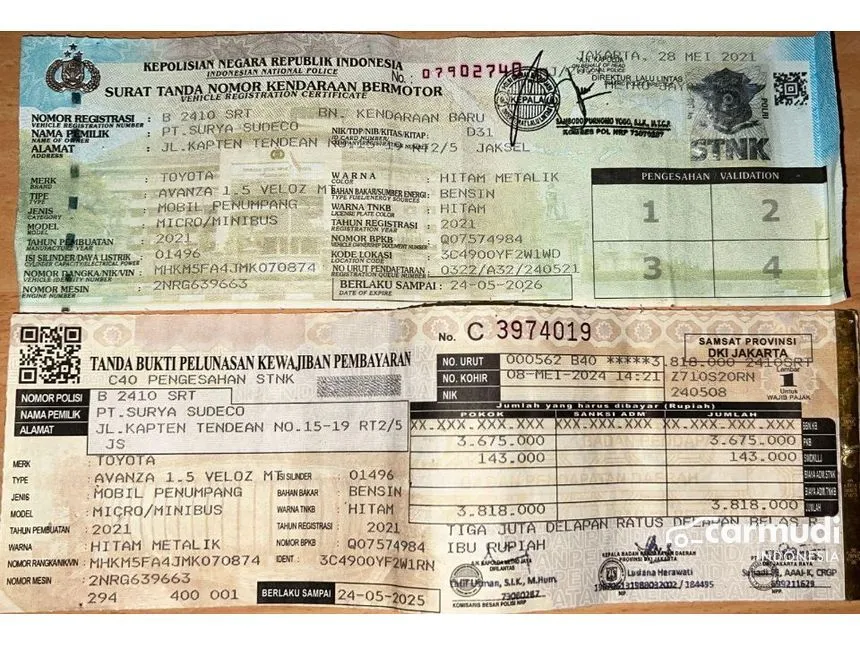 KEPOLISIAN NEGARA REPUBLIK INDONESIA
INDONESIAN NATIONAL POLICE
No.: 07902740
SURAT TANDA NOMOR KENDARAAN BERMOTOR
VEHICLE REGISTRATION CERTIFICATE
JAKARTA, 28 MEI 2021
DIREKTUR LALU LINTAS
KEPALA
SAMBODO PURNOMO YOGO, S.I.K., M.T.C.P.
KOMBES POL NRP 73070287
POLRI
STNK
NOMOR REGISTRASI : B 2410 SRT BN. KENDARAAN BARU
VEHICLE REGISTRATION NUMBER
NAMA PEMILIK : PT.SURYA SUDECO NIK/TDP/NIB/KITAS/KITAP : D31
NAME OF OWNER
ALAMAT : JL.KAPTEN TENDEAN RT2/5 JAKSEL
ADDRESS
MERK : TOYOTA WARNA : HITAM METALIK
BRAND COLOR
TIPE : AVANZA 1.5 VELOZ MT BAHAN BAKAR/SUMBER ENERGI : BENSIN
TYPE TYPE FUEL/ENERGY SOURCES
JENIS : MOBIL PENUMPANG WARNA TNKB : HITAM
CATEGORY LICENSE PLATE COLOR
MODEL : MICRO/MINIBUS TAHUN REGISTRASI : 2021
MODEL REGISTRATION YEAR
TAHUN PEMBUATAN : 2021 NOMOR BPKB : Q07574984
MANUFACTURE YEAR VEHICLE OWNERSHIP DOCUMENT NUMBER
ISI SILINDER/DAYA LISTRIK : 01496 KODE LOKASI : 3C4900YF2W1WD
CYLINDER CAPACITY/ELECTRICAL POWER LOCATION CODE
NOMOR RANGKA/NIK/VIN : MHKM5FA4JMK070874 NO URUT PENDAFTARAN : 0322/A32/240521
VEHICLE IDENTITY NUMBER REGISTRATION QUEUE NUMBER
NOMOR MESIN : 2NRG639663 BERLAKU SAMPAI : 24-05-2026
ENGINE NUMBER DATE OF EXPIRE
PENGESAHAN / VALIDATION
1 2
3 4
No. C 3974019
SAMSAT PROVINSI
DKI JAKARTA
TANDA BUKTI PELUNASAN KEWAJIBAN PEMBAYARAN
C40 PENGESAHAN STNK
NO. URUT 000562 B40 *****3.818.000 2410SRT
NO. KOHIR 08-MEI-2024 14:21 Z710S20RN
NIK 240508
Lembar
1
Untuk
WAJIB PAJAK
NOMOR POLISI B 2410 SRT
NAMA PEMILIK PT.SURYA SUDECO
ALAMAT JL.KAPTEN TENDEAN NO.15-19 RT2/5
JS
Jumlah yang harus dibayar (Rupiah)
POKOK SANKSI ADM JUMLAH
XX.XXX.XXX XX.XXX.XXX XX.XXX.XXX BBN KB
3.675.000 3.675.000 PKB
143.000 143.000 SWDKLLJ
BIAYA ADM.STNK
BIAYA ADM.TNKB
3.818.000 3.818.000 JUMLAH
MERK : TOYOTA
TYPE : AVANZA 1.5 VELOZ MT ISI SILINDER : 01496
JENIS : MOBIL PENUMPANG BAHAN BAKAR : BENSIN
MODEL : MICRO/MINIBUS WARNA TNKB : HITAM
TAHUN PEMBUATAN : 2021 TAHUN REGISTRASI : 2021
WARNA : HITAM METALIK NOMOR BPKB : Q07574984
NOMOR RANGKA/NIK/VIN : MHKM5FA4JMK070874 IDENT. : 3C4900YF2W1RN
NOMOR MESIN : 2NRG639663
294 400 001 BERLAKU SAMPAI 24-05-2025
TIGA JUTA DELAPAN RATUS DELAPAN BELAS R
IBU RUPIAH
A.N. KAPOLDA METRO JAYA
DIRLANTAS
S.I.K, M.Hum.
KOMISARIS BESAR POLISI NRP
KEPALA BADAN PENDAPATAN DAERAH
PROVINSI DKI JAKARTA
Lusiana Herawati
/ 184495
NIP.
AAAI-K, CRGP
NPP.
carmudi
INDONESIA